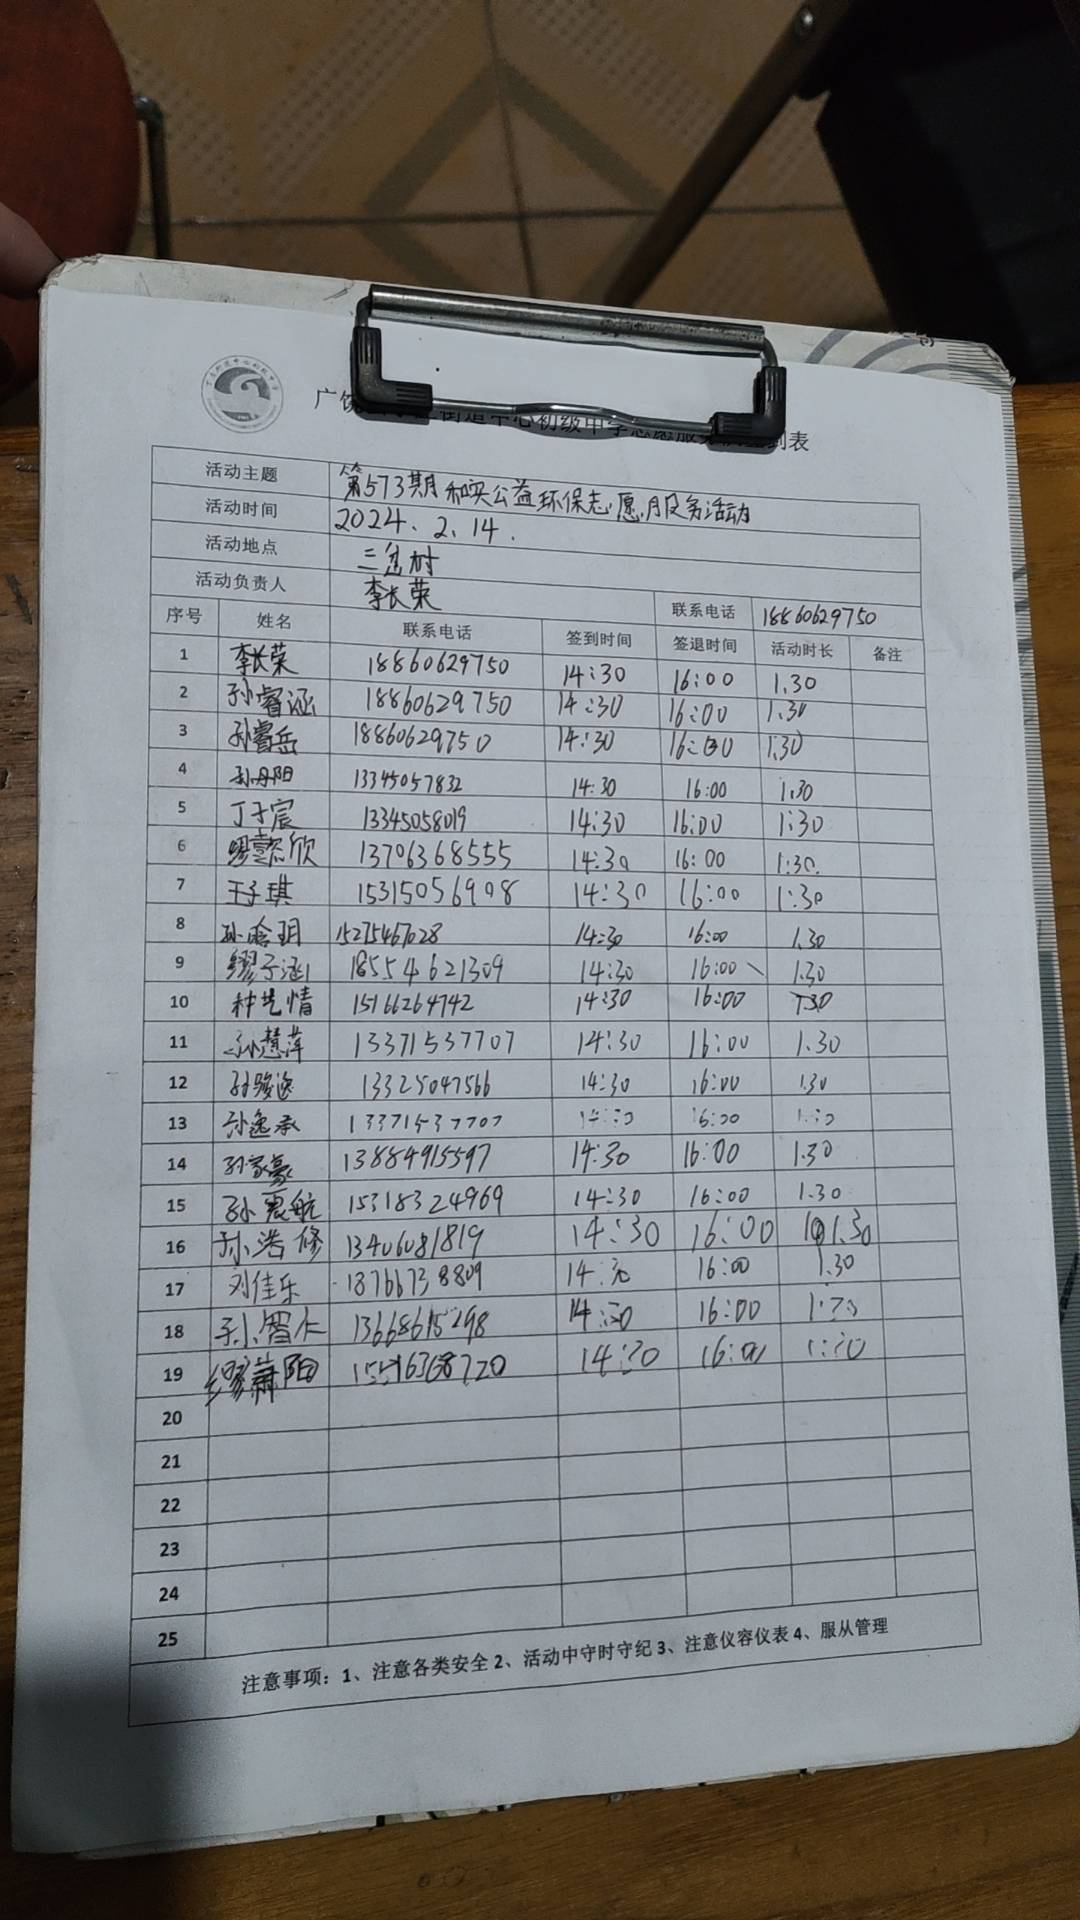 活动主题 第573期和实公益环保志愿服务活动
活动时间 2024.2.14.
活动地点 三岔村
活动负责人 李长荣 联系电话 18860629750
序号 姓名 联系电话 签到时间 签退时间 活动时长 备注
1 李长荣 18860629750 14:30 16:00 1.30
2 孙睿涵 18860629750 14:30 16:00 1.30
3 孙睿岳 18860629750 14:30 16:00 1:30
4 孙丹阳 13345057832 14:30 16:00 1.30
5 丁子宸 13345058019 14:30 16:00 1:30
6 缪懿欣 13706368555 14:30 16:00 1:30.
7 王子琪 15315056908 14:30 16:00 1:30
8 孙晗玥 15275467028 14:30 16:00 1.30
9 缪子涵 18554621309 14:30 16:00 1.30
10 种艺情 15166264742 14:30 16:00 1:30
11 孙慧萍 13371537707 14:30 16:00 1.30
12 孙骏逸 13325047566 14:30 16:00 1.30
13 孙逸承 13371537707 16:00
14 孙家豪 13884915597 14:30 16:00 1.30
15 孙晨航 15318324969 14:30 16:00 1.30
16 孙浩修 13406081819 14:30 16:00 1.30
17 刘佳乐 18766738809 16:00 1.30
18 孙智仁 14:30 16:00
19 缪萧阳 14:30 16:00
20
21
22
23
24
25
注意事项：1、注意各类安全 2、活动中守时守纪 3、注意仪容仪表 4、服从管理